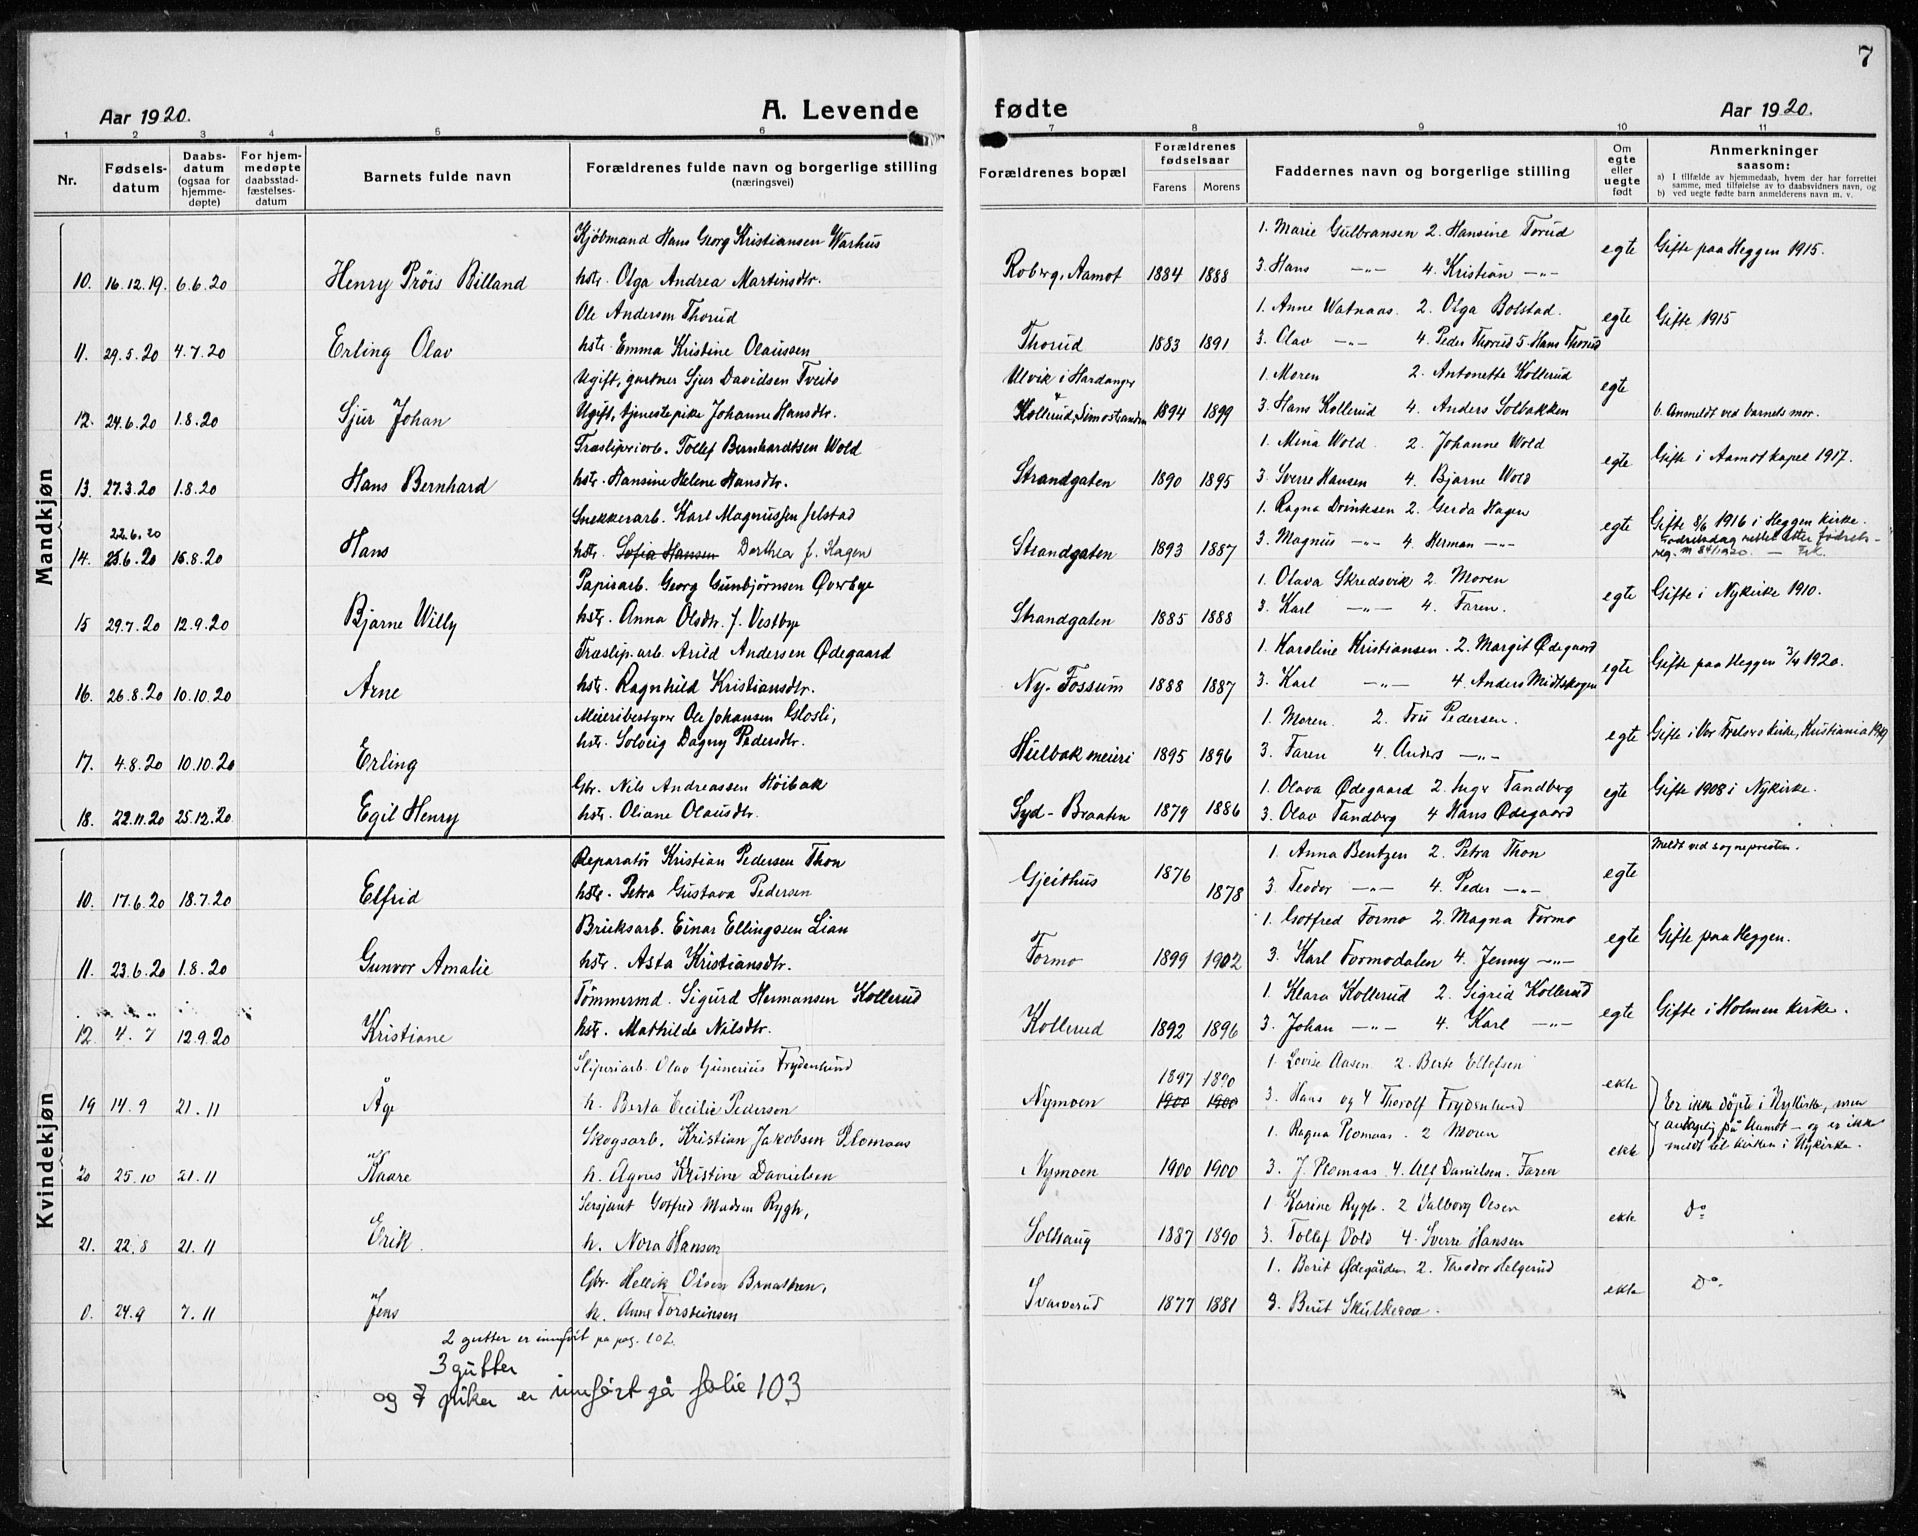 7
Aar 1920.
A. Levende fødte
Aar 1920.
1 2 3 4 5 6 7 8 9 10 11
Nr.
Fødsels-datum
Daabs-datum (ogsaa for hjemme-døpte)
For hjem-medøpte daabsstad-fæstelses-datum
Barnets fulde navn
Forældrenes fulde navn og borgerlige stilling (næringsvei)
Forældrenes bopæl
Forældrenes fødselsaar
Farens Morens
Faddernes navn og borgerlige stilling
Om egte eller uegte født
Anmerkninger saasom:
a) I tilfælde av hjemmedaab, hvem der har forrettet samme, med tilføielse av to daabsvidners navn, og
b) ved uegte fødte barn anmelderens navn m. v.
Mandkjøn
Kjøbmand Hans Georg Kristiansen Warhus 1. Marie Gulbransen 2. Hansine Torud
10. 16.12.19. 6.6.20 Henry Pröis Billand hstr. Olga Andrea Martinsdtr. Roberg, Aamot 1884 1888 3. Hans —"— 4. Kristian —"— egte Gifte paa Heggen 1915.
Ole Andersen Thorud 1. Anne Watnaas 2. Olga Bolstad.
11. 29.5.20 4.7.20 Erling Olav hstr. Emma Kristine Olaussen Thorud 1883 1891 3. Olav —"— 4. Peder Thorud 5. Hans Thorud egte Gifte 1915
Ugift, gartner Sjur Davidsen Tveito Ulvik i Hardanger 1. Moren 2. Antonette Kollerud
12. 24.6.20 1.8.20 Sjur Johan Ugift, tjenestepike Johanne Hansdtr. Kollerud, Simostranden 1894 1899 3. Hans Kollerud 4. Anders Solbakken egte b. Anmeldt ved barnets mor.
Træsliperiarb. Tollef Bernhardtsen Wold 1. Mina Wold. 2. Johanne Wold
13. 27.3.20 1.8.20 Hans Bernhard hstr. Hansine Helene Hansdtr. Strandgaten 1890 1895 3. Sverre Hansen 4. Bjarne Wold egte Gifte i Aamot kapel 1917.
22.6.20 Snekkerarb. Karl Magnussen Jelstad 1. Ragna Dvinksen 2. Gerda Hagen
14. 25.6.20 15.8.20 Hans hstr. Sofia Hansen Dorthea f. Hagen Strandgaten 1893 1887 3. Magnus —"— 4. Herman —"— egte Gifte 8/6 1916 i Heggen kirke.
Fødselsdag rettet etter fødsels-
reg. 84/1920. —
Papirarb. Georg Gunbjørnsen Øverbye 1. Olava Skredsvik 2. Moren
15 29.7.20 12.9.20 Bjarne Willy hstr. Anna Olsdtr. f. Vestbye Strandgaten 1885 1888 3. Karl —"— 4. Faren. egte Gifte i Nykirke 1910.
Træslip.arb. Arild Andersen Ødegaard 1. Karoline Kristiansen. 2. Margit Ødegaard
16. 26.8.20 10.10.20 Arne hstr. Ragnhild Kristiansdtr. Ny-Fossum 1888 1887 3. Karl —"— 4. Anders Midtskogen egte Gifte paa Heggen 3/4 1920.
Meieribestyrer Ole Johansen Glosli, 1. Moren. 2. Fru Pedersen.
17. 4.8.20 10.10.20 Erling hstr. Solveig Dagny Pedersdtr. Hulbak meieri 1895 1896 3. Faren 4. Anders —"— egte Gifte i Vor Frelsers kirke, Kristiania 1919
Gbr. Nils Andreassen Höibak 1. Olava Ødegaard 2. Inger Tandberg
18. 22.11.20 25.12.20 Egil Henry hstr. Oliane Olausdtr. Syd-Braaten 1879 1886 3. Olav Tandberg 4 Hans Ødegaard egte Gifte 1908 i Nykirke.
Kvindekjøn
Reparatör Kristian Pedersen Thon 1. Anna Bentzen 2. Petra Thon Meldt ved sogneprosten.
10. 17.6.20 18.7.20 Elfrid hstr. Petra Gustava Pedersen Gjeithus 1876 1878 3. Teodor —"— 4. Peder —"— egte
Bruksarb. Einar Ellingssen Lian 1. Gotfred Formo 2. Magna Formo
11. 23.6.20 1.8.20 Gunvor Amalie hstr. Asta Kristiansdtr. Formo 1899 1902 3. Karl Formodalen 4. Jenny —"— egte Gifte paa Heggen.
Tömmermd. Sigurd Hermansen Kollerud 1. Klara Kollerud 2. Sigrid Kollerud
12. 4.7 12.9.20 Kristiane hstr. Mathilde Nilsdtr. Kollerud 1892 1896 3. Johan —"— 4. Karl —"— egte Gifte i Holmen kirke.
Sliperiarb. Olav Gunerius Frydenlund 1897 1890 1. Lovise Aasen 2. Berte Ellefsen
19 14.9 21.11 Åge h. Berta Cecilie Pedersen Nymoen 1900 1900 3. Hans og 4 Thorolf Frydenlund ekte Er ikke døpte i Nykirke, men
antagelig på Aamot — og er ikke
meldt til kirken i Nykirke.
Skogsarb. Kristian Jakobsen Plomaas 1. Ragna Plomaas. 2 Moren
20 25.10 21.11 Kaare h. Agnes Kristine Danielsen Nymoen 1900 1900 3. J. Plomaas. 4. Alf Danielsen. Faren ekte
Sersjant Gotfred Madsen Rygh, 1. Karine Rygh. 2 Valborg Olsen
21. 22.8 21.11 Erik. h. Nora Hansen Solhaug 1887 1890 3. Tollef Vold 4. Sverre Hansen ekte Do
Gbr. Hellik Olsen Braathen, 1. Berit Ødegården 2. Theodor Helgerud
0. 24.9 7.11 Jens h. Anne Torsteinsen Svarverud 1877 1881 3. Berit Skulkeroa. ekte Do
2 gutter er innført pa pag. 102.
3 gutter
og 7 piker er innført på folie 103